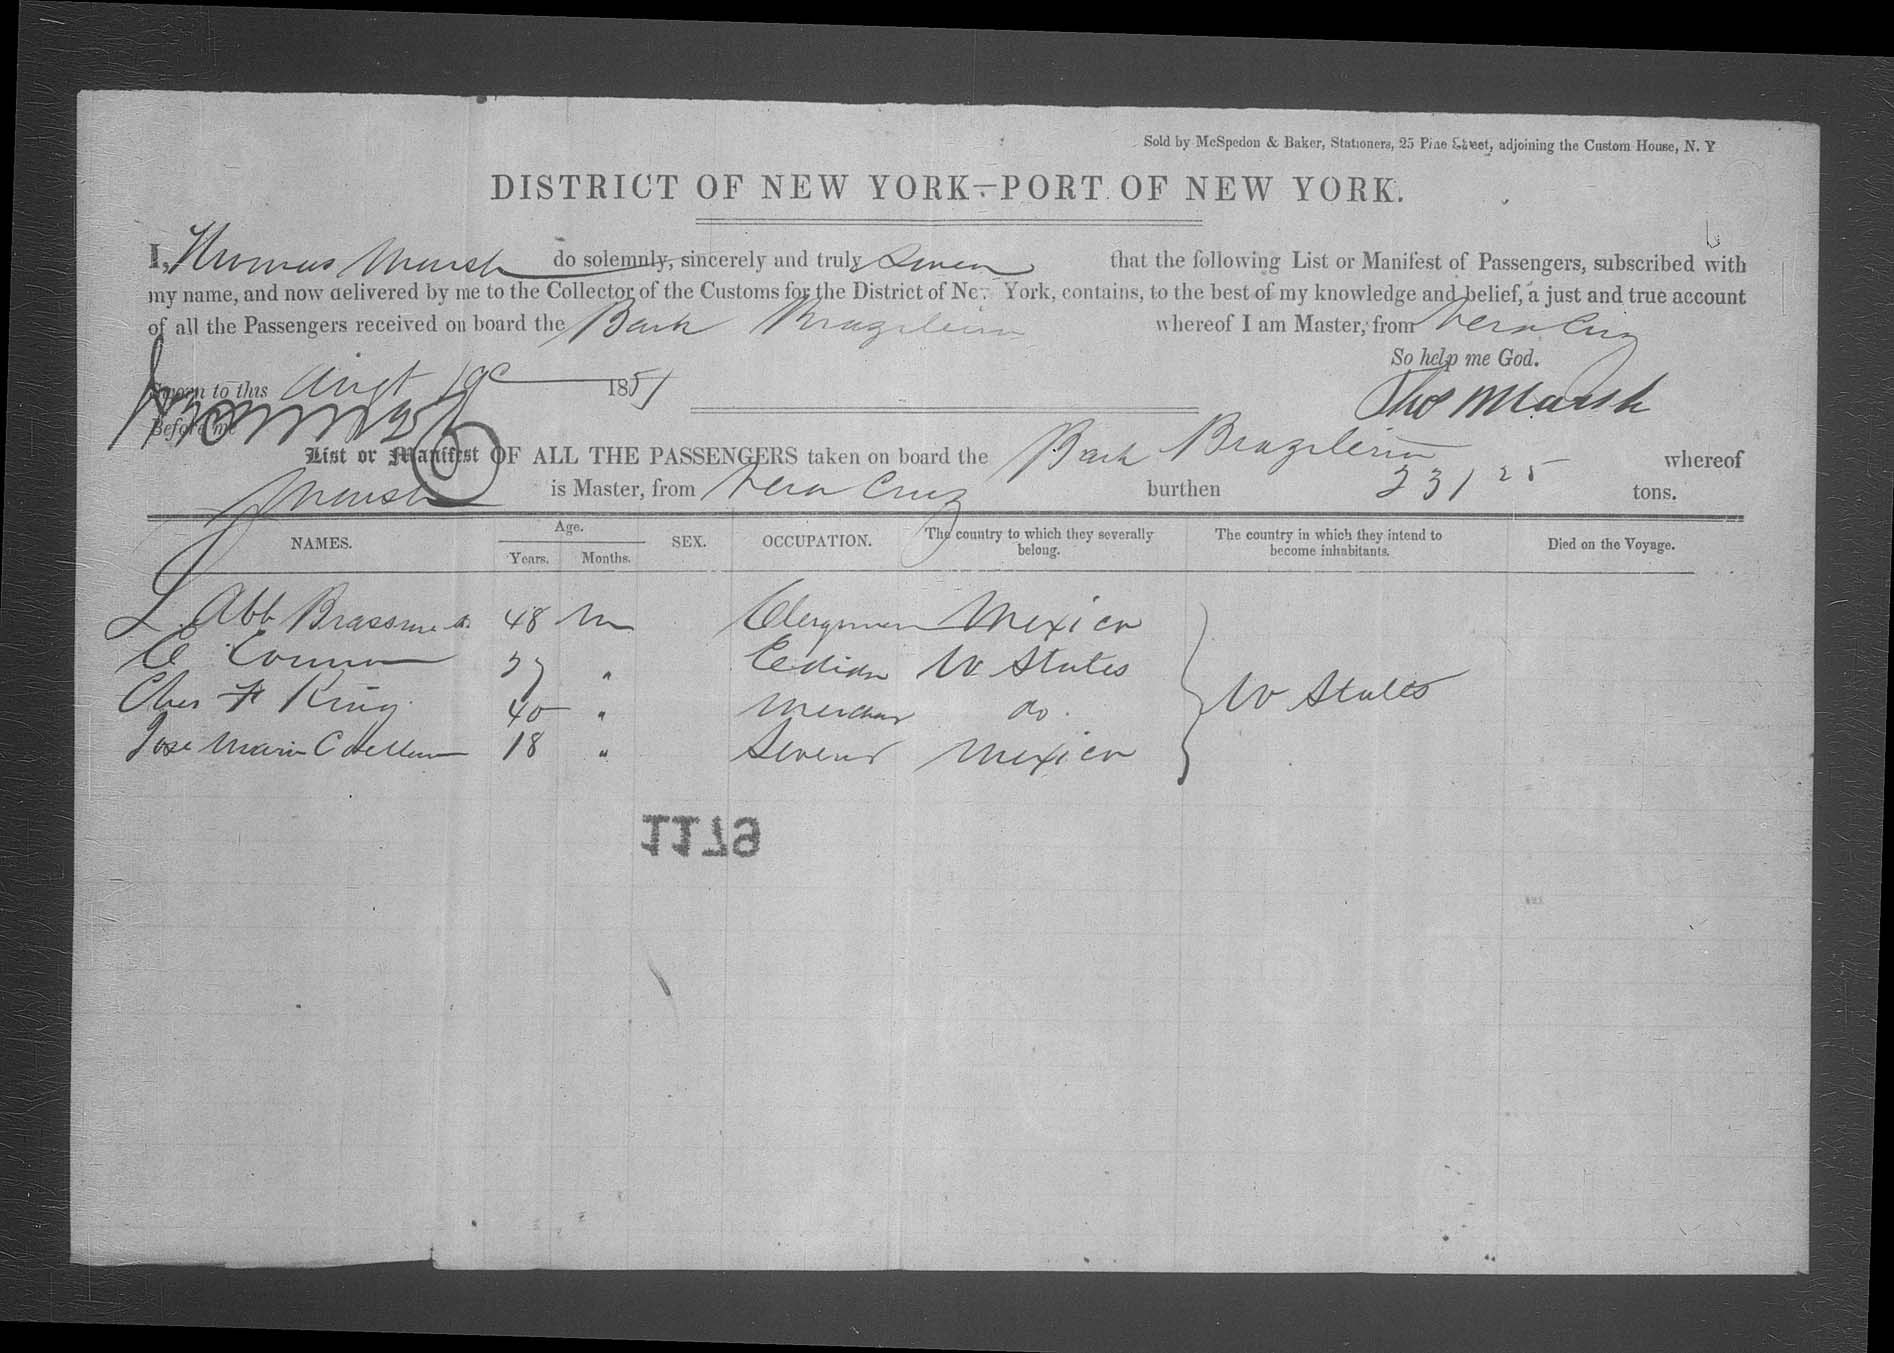 Sold by McSpedon & Baker, Stationers, 25 Pine Street, adjoining the Custom House, N. Y
DISTRICT OF NEW YORK—PORT OF NEW YORK.
I, Thomas Marsh do solemnly, sincerely and truly Swear that the following List or Manifest of Passengers, subscribed with
my name, and now delivered by me to the Collector of the Customs for the District of New York, contains, to the best of my knowledge and belief, a just and true account
of all the Passengers received on board the Bark Brazileira whereof I am Master, from Vera Cruz
So help me God.
Sworn to this Augt 19 1851
Thos Marsh
Before me
List or Manifest OF ALL THE PASSENGERS taken on board the Bark Brazileira whereof
Marsh is Master, from Vera Cruz burthen 231 25 tons.
NAMES. Age. Years. Months. SEX. OCCUPATION. The country to which they severally belong. The country in which they intend to become inhabitants. Died on the Voyage.
L Abb 48 m Clergyman Mexico
27 " U States
Chas F King 40 " Merchant do
Jose Maria 18 " Servant Mexico
U States
1179